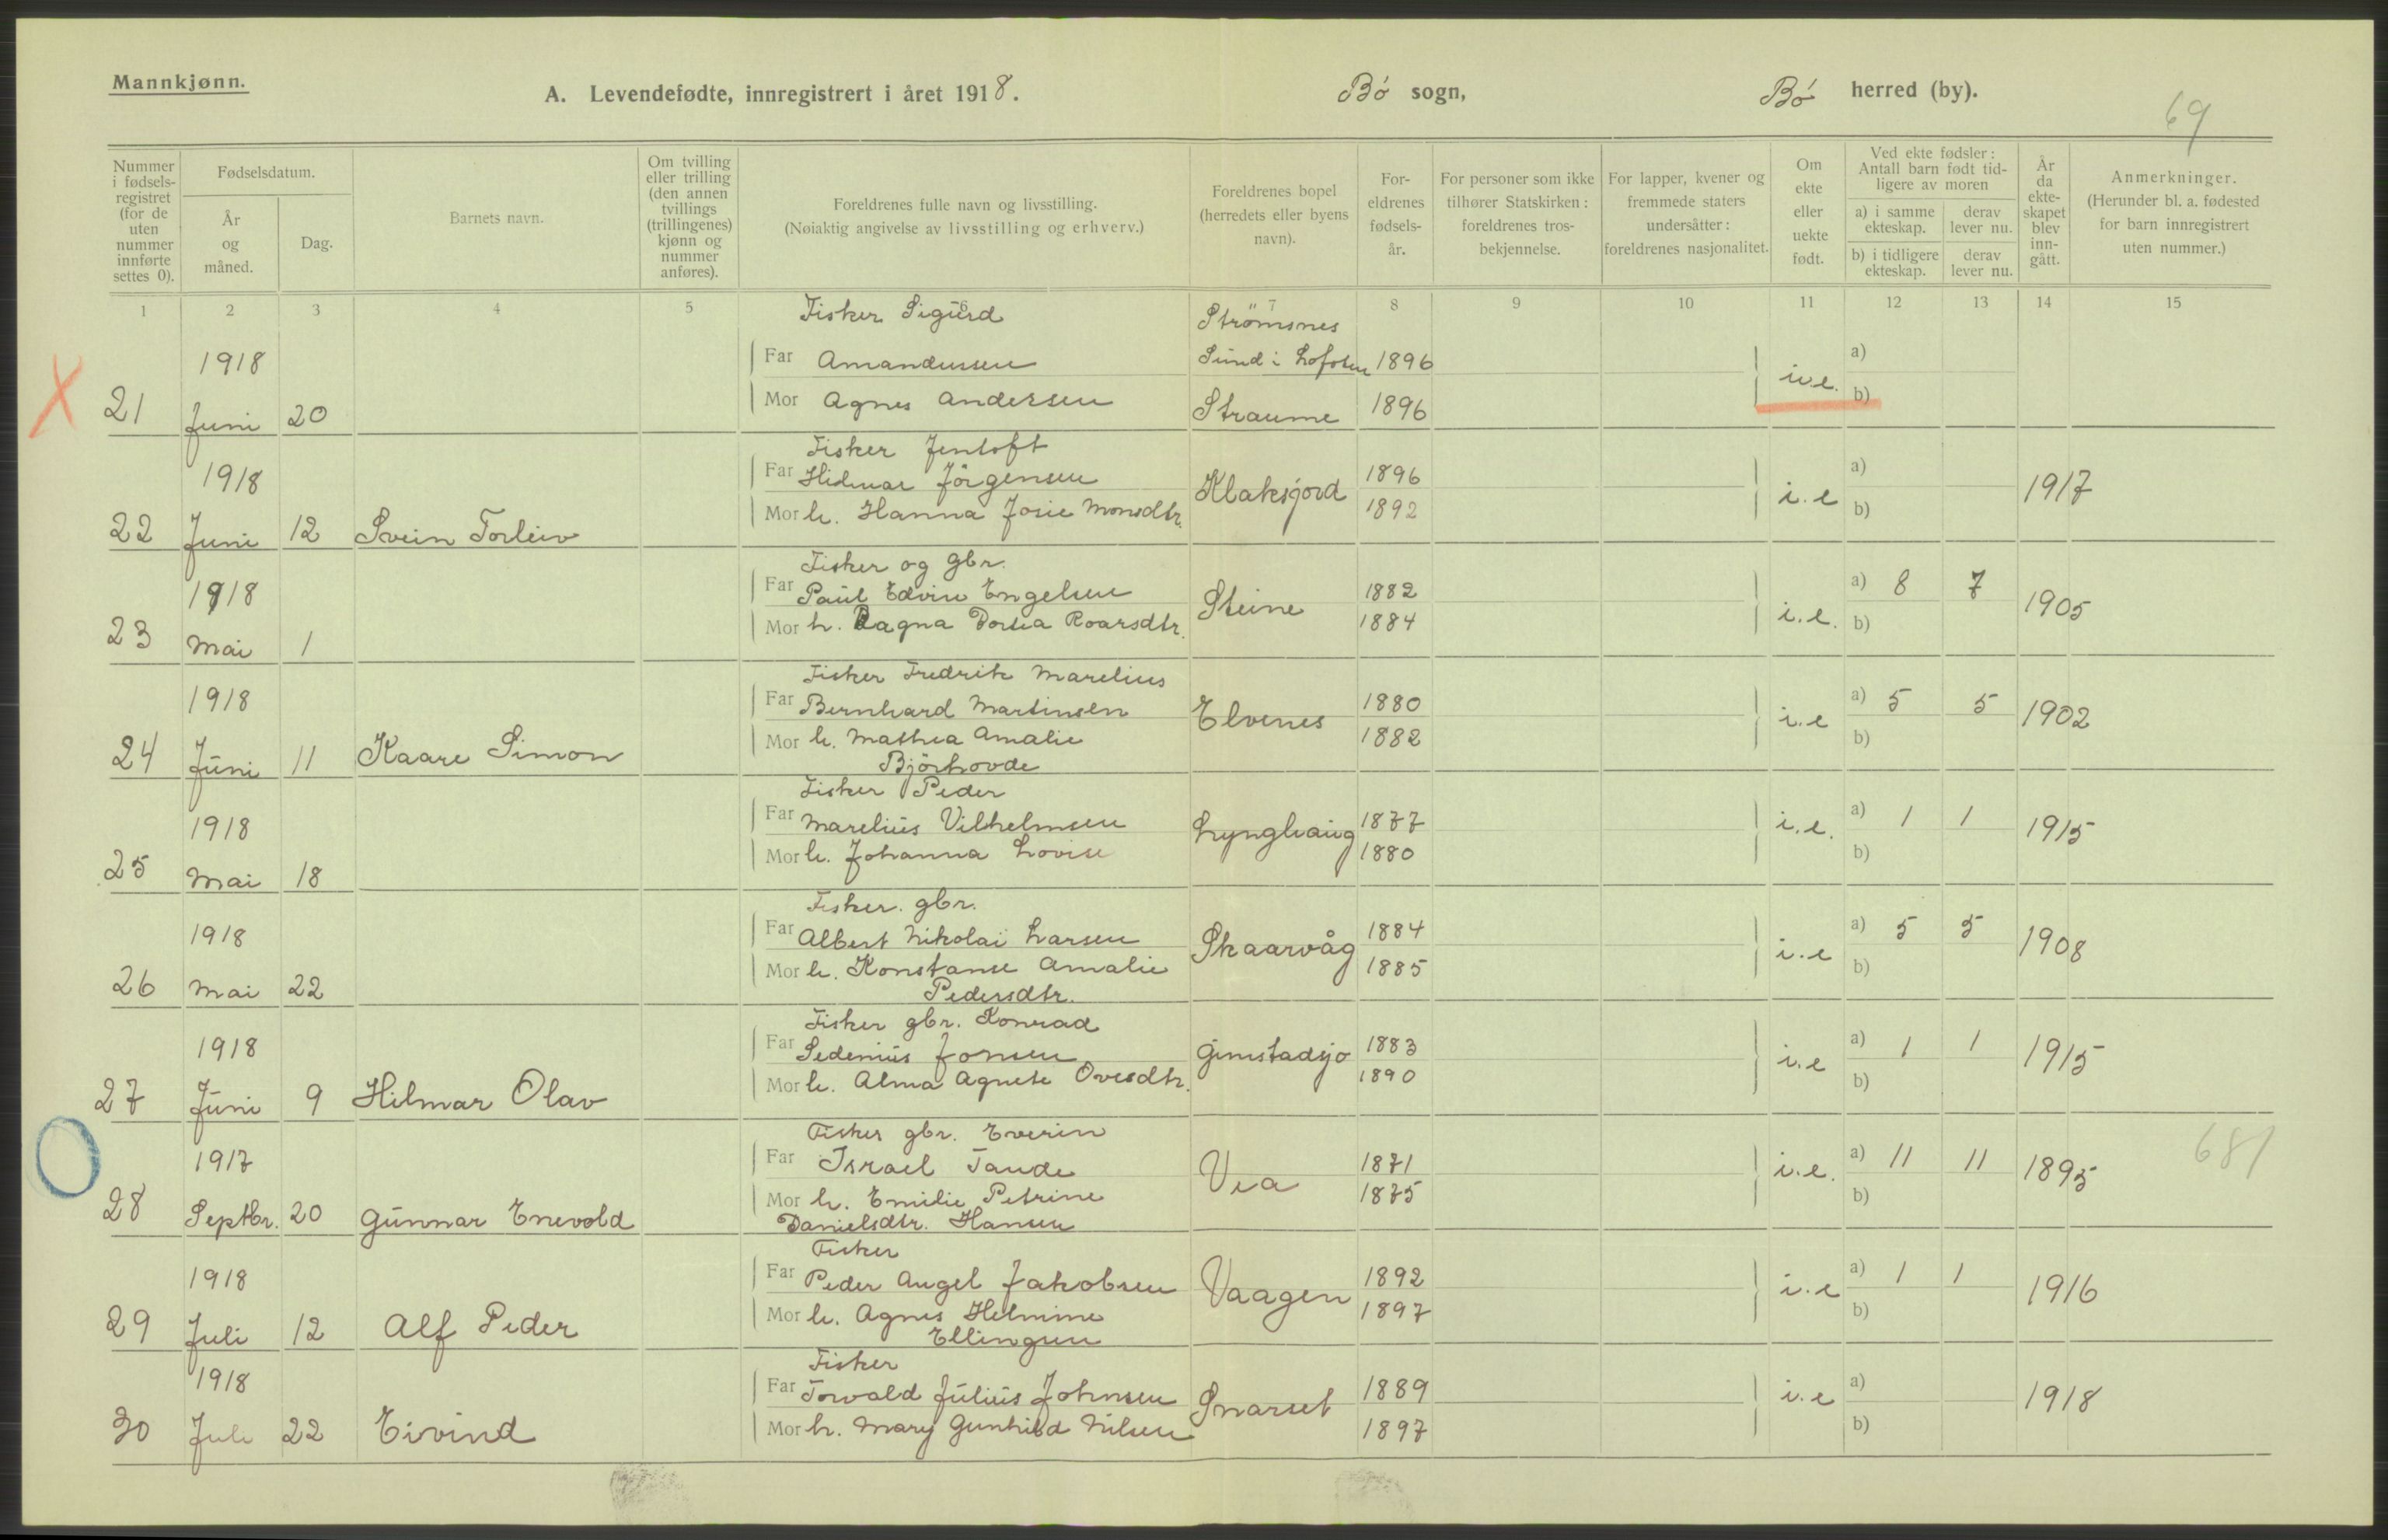 Mannkjønn.
A. Levendefødte, innregistrert i året 1918. Bø sogn, Bø herred (by).
69
Nummer i fødsels-registret (for de uten nummer innførte settes 0).
Fødselsdatum.
År og måned.
Dag.
Barnets navn.
Om tvilling eller trilling (den annen tvillings (trillingenes) kjønn og nummer anføres).
Foreldrenes fulle navn og livsstilling.
(Nøiaktig angivelse av livsstilling og erhverv.)
Foreldrenes bopel (herredets eller byens navn).
For-eldrenes fødsels-år.
For personer som ikke tilhører Statskirken: foreldrenes tros-bekjennelse.
For lapper, kvener og fremmede staters undersåtter: foreldrenes nasjonalitet.
Om ekte eller uekte født.
Ved ekte fødsler: Antall barn født tid-ligere av moren
a) i samme ekteskap.
derav lever nu.
b) i tidligere ekteskap.
derav lever nu.
År da ekte-skapet blev inn-gått.
Anmerkninger.
(Herunder bl. a. fødested for barn innregistrert uten nummer.)
1 2 3 4 5 6 7 8 9 10 11 12 13 14 15
Fisker Sigurd Strömsnes
1918 Far Amandussen Sund i Lofoten 1896 a)
21 Juni 20 Mor Agnes Andersen Straume 1896 u.e. b)
Fisker Jentoft
1918 Far Hidmar Jörgensen Klaksjord 1896 i.e a) 1917
22 Juni 12 Svein Torleiv Mor h. Hanna Josie Monsdtr. 1892 b)
Fisker og gbr.
1918 Far Paul Edvin Engelsen Steine 1882 i.e. a) 8 7 1905
23 Mai 1 Mor h. Ragna Dortea Roarsdtr. 1884 b)
Fisker Fredrik Marelius
1918 Far Bernhard Martinsen Elvenes 1880 i.e a) 5 5 1902
24 Juni 11 Kaare Simon Mor h. Mathea Amalie 1882 b)
Björhovde
Fisker Peder
1918 Far Marelius Vilhelmsen Lynghaug 1877 i.e. a) 1 1 1915
25 Mai 18 Mor h. Johanna Lovise 1880 b)
Fisker. gbr.
1918 Far Albert Nikolai Larsen Skaarvåg 1884 i.e a) 5 5 1908
26 Mai 22 Mor h. Konstanse Amalie 1885 b)
Pedersdtr.
Fisker gbr. Konrad
1918 Far Sedenius Jonsen Gimstadsjo 1883 i.e a) 1 1 1915
27 Juni 9 Hilmar Olav Mor h. Alma Agnete Ovesdtr. 1890 b)
Fisker gbr. Everin
1917 Far Israel Tande Vea 1871 i.e. a) 11 11 1895 681
28 Septbr. 20 Gunnar Enevold Mor h. Emilie Petrine 1875 b)
Danielsdtr. Hansen
Fisker
1918 Far Peder Angel Jakobsen Vaagen 1892 i.e a) 1 1 1916
29 Juli 12 Alf Peder Mor h. Agnes Helmine 1897 b)
Ellingsen
Fisker
1918 Far Torvald Julius Johnsen Snarset 1889 i.e a) 1918
30 Juli 22 Eivind Mor h. Mary Gunhild Nilsen 1897 b)